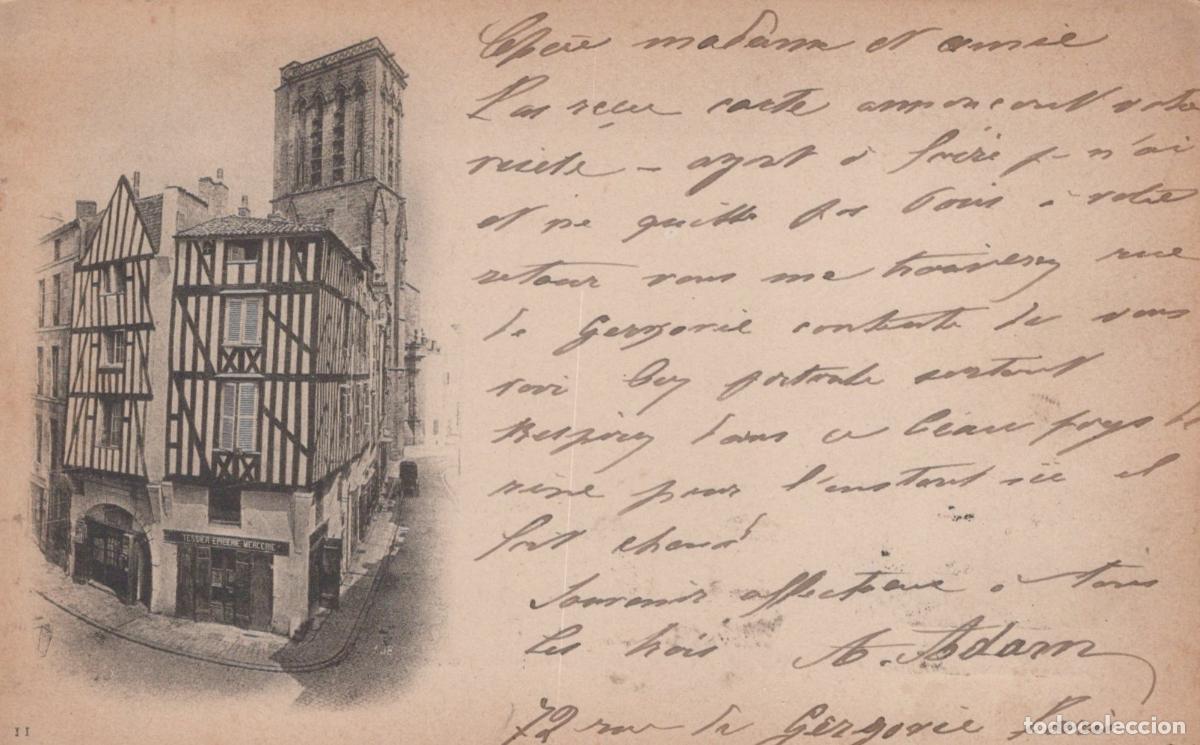 Chère madame et amie
reçu carte annonçant votre
visite - ayant à faire je n'ai
et ne quitte pas Paris à votre
retour vous me trouverez rue
de Gergovie contente de vous
surtout
dans ce beau pays de
pour l'instant ici il
fait chaud
Souvenir affectueux à tous
les trois A. Adam
72 rue de Gergovie Paris
TESSIER EPICERIE MERCERIE
11
todocoleccion